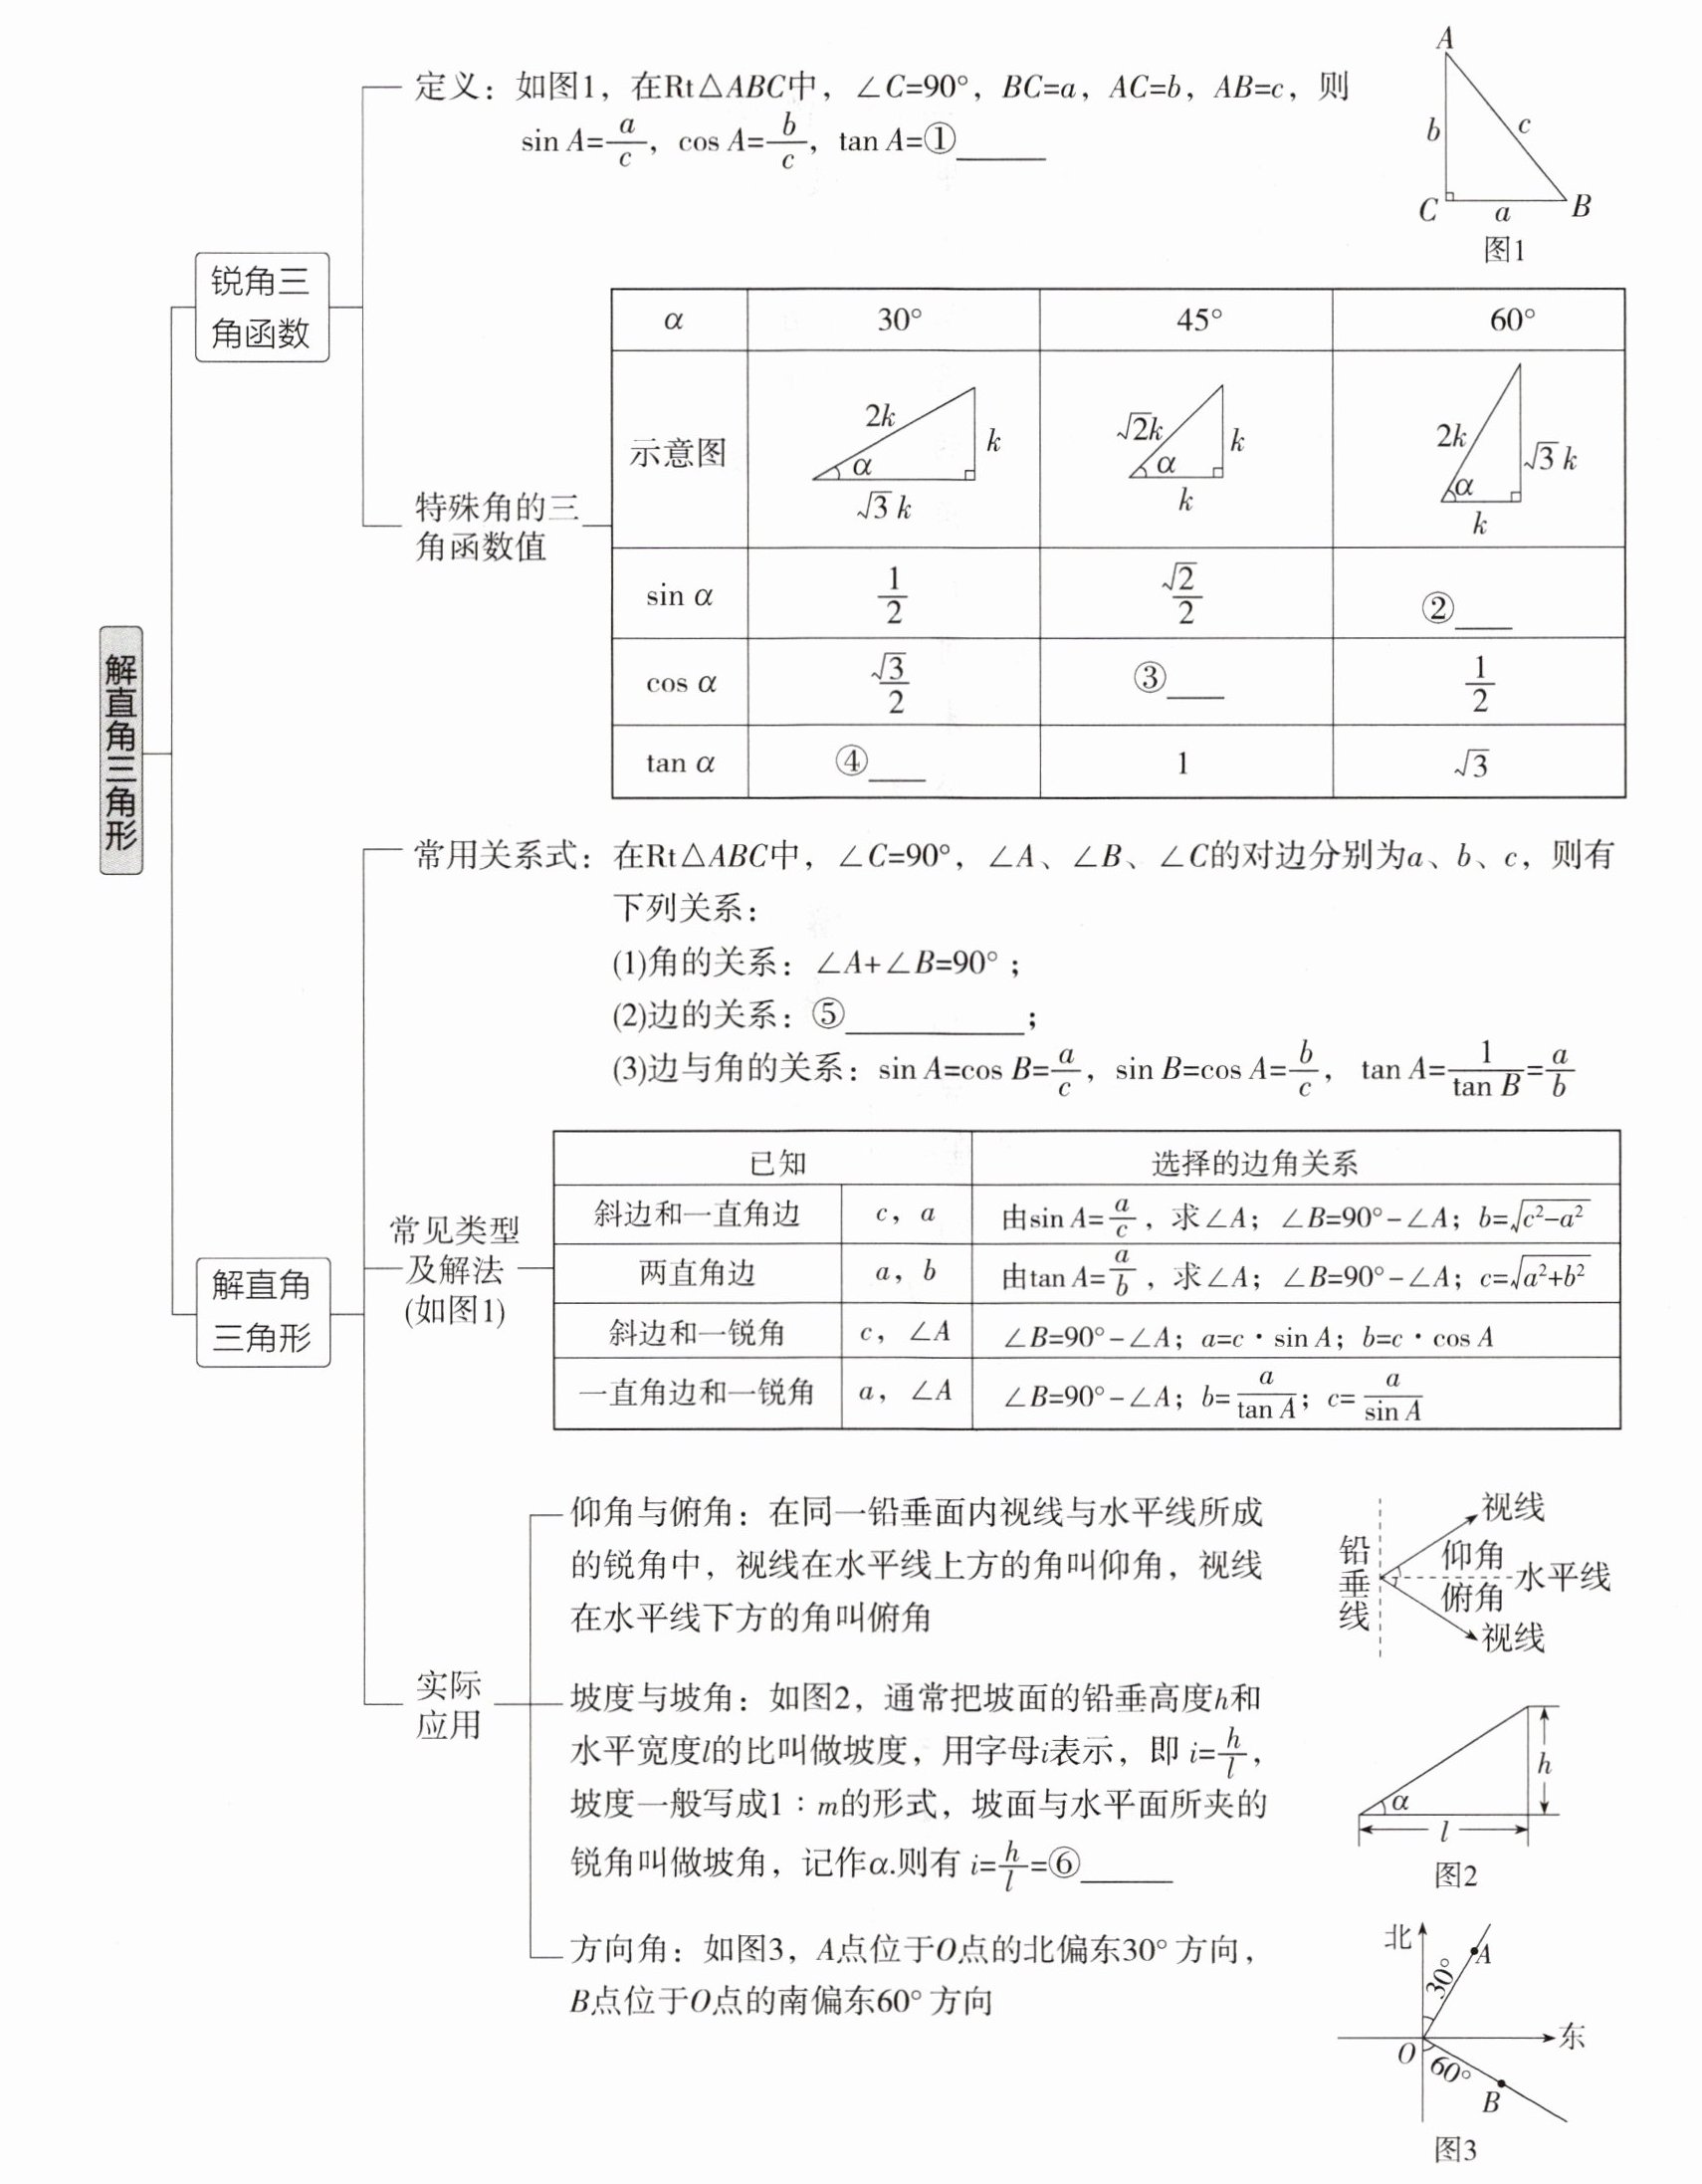 定义：如图1，在Rt△ABC中，∠C=90°，BC=a，AC=b，AB=c，则
sin A=a/c，cos A=b/c，tan A=①______
A
b
c
C
a
B
图1
锐角三
角函数
特殊角的三
角函数值
α 30° 45° 60°
示意图
2k
k
α
√3 k
√2k
k
α
k
2k
√3 k
α
k
sin α 1/2 √2/2 ②____
cos α √3/2 ③____ 1/2
tan α ④____ 1 √3
解直角三角形
解直角
三角形
常用关系式：在Rt△ABC中，∠C=90°，∠A、∠B、∠C的对边分别为a、b、c，则有
下列关系：
(1)角的关系：∠A+∠B=90°；
(2)边的关系：⑤____________；
(3)边与角的关系：sin A=cos B=a/c，sin B=cos A=b/c， tan A=1/tan B=a/b
常见类型
及解法
(如图1)
已知 选择的边角关系
斜边和一直角边 c，a 由sin A=a/c，求∠A；∠B=90°-∠A；b=√(c²-a²)
两直角边 a，b 由tan A=a/b，求∠A；∠B=90°-∠A；c=√(a²+b²)
斜边和一锐角 c，∠A ∠B=90°-∠A；a=c·sin A；b=c·cos A
一直角边和一锐角 a，∠A ∠B=90°-∠A；b=a/tan A；c=a/sin A
实际
应用
仰角与俯角：在同一铅垂面内视线与水平线所成
的锐角中，视线在水平线上方的角叫仰角，视线
在水平线下方的角叫俯角
铅垂线
视线
仰角
水平线
俯角
视线
坡度与坡角：如图2，通常把坡面的铅垂高度h和
水平宽度l的比叫做坡度，用字母i表示，即 i=h/l，
坡度一般写成1∶m的形式，坡面与水平面所夹的
锐角叫做坡角，记作α.则有 i=h/l=⑥______
h
α
l
图2
方向角：如图3，A点位于O点的北偏东30° 方向，
B点位于O点的南偏东60° 方向
北
A
30°
东
O
60°
B
图3